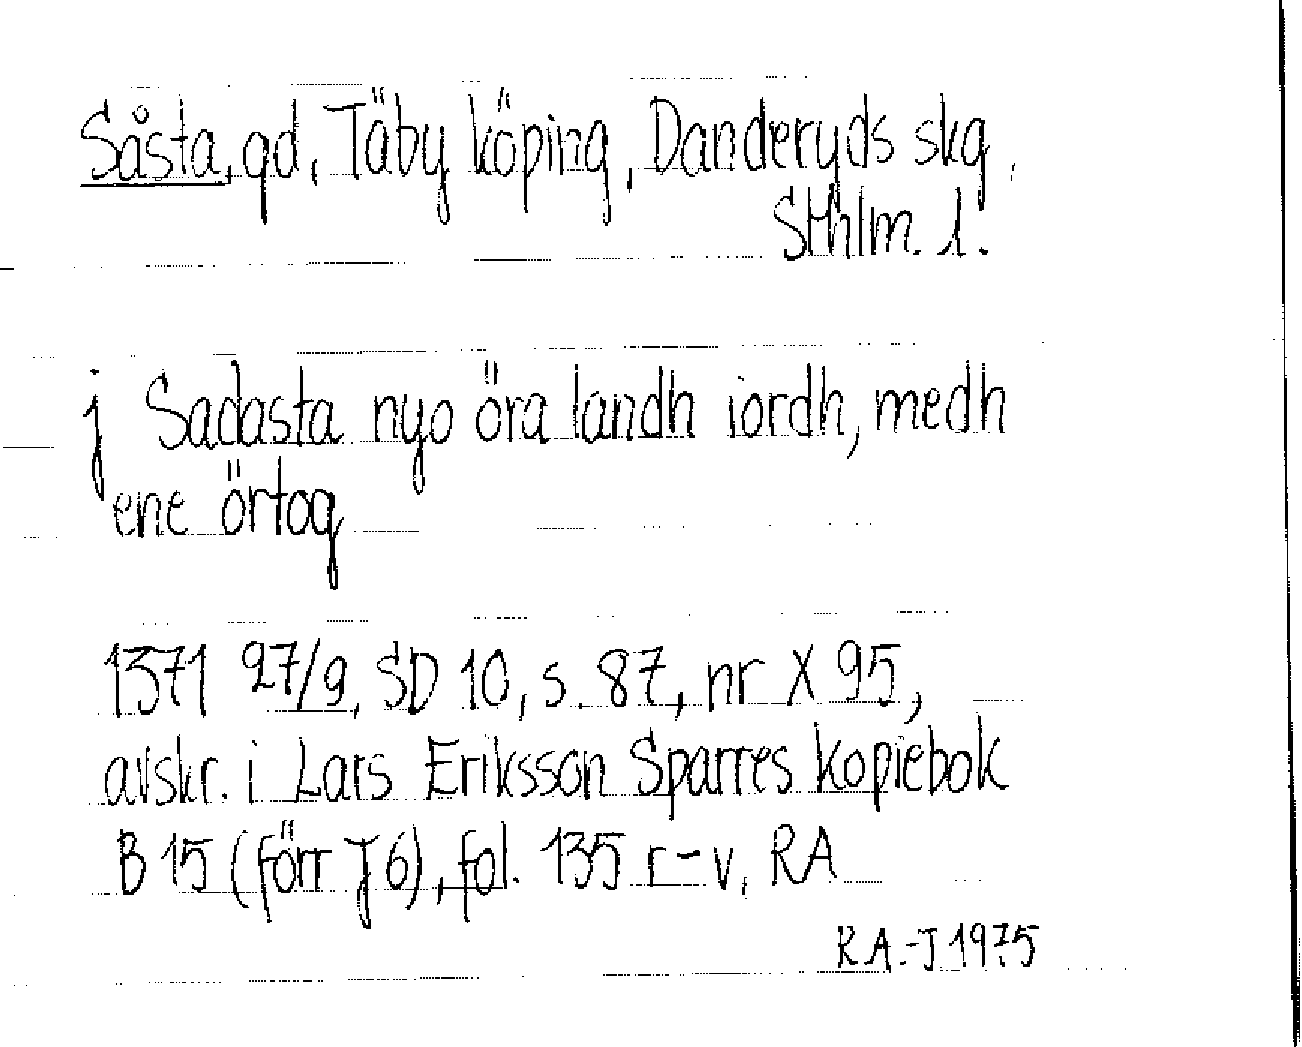 Såsta, gd, Täby köping, Danderyds skg,
Sthlm. l.
j Sadasta nyo öra landh iordh, medh
ene örtog
1371 27/9, SD 10, s. 87, nr X 95,
avskr. i Lars Eriksson Sparres kopiebok
B 15 (förr J 6), fol. 135 r-v, RA
R A.-J 1975